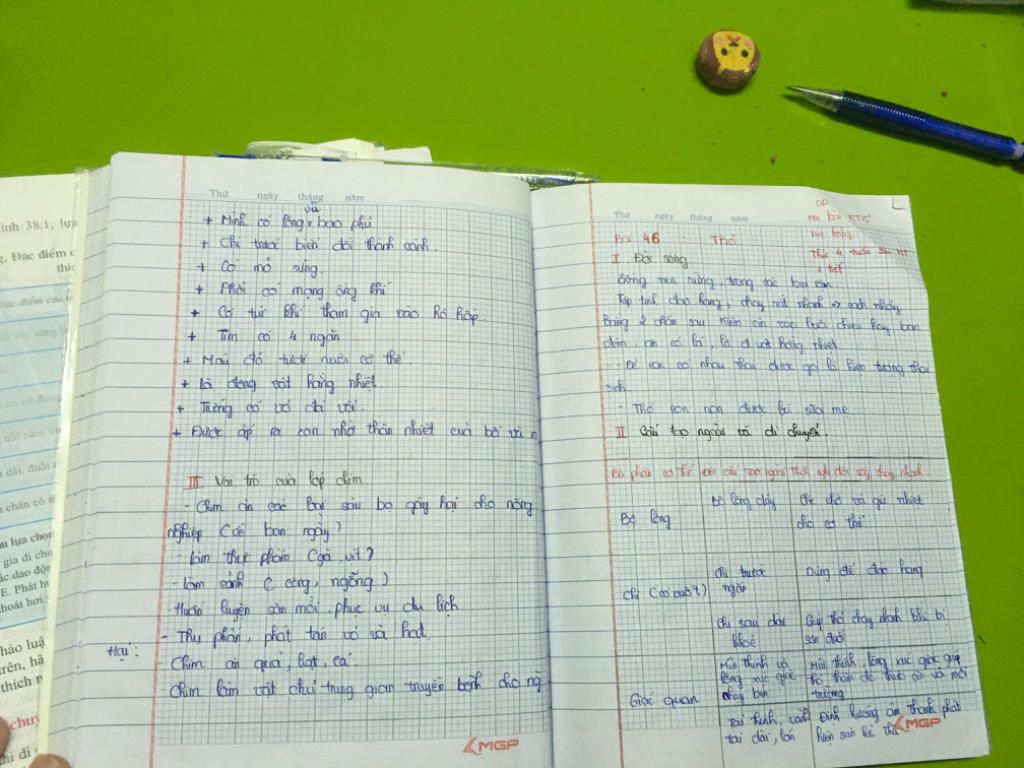 Thứ ngày tháng năm
+ Mình có lông vũ bao phủ
+ Chi trước biến đổi thành cánh.
+ Có mỏ sừng.
+ Phổi có mạng ống khí
+ Có túi khí tham gia vào hô hấp
+ Tim có 4 ngăn
+ Máu đỏ tươi nuôi cơ thể.
+ là động vật hằng nhiệt
+ Trứng có vỏ đá vôi.
+ Được ấp nở ra con nhờ thân nhiệt của bố và
III Vai trò của lớp chim
- Chim ăn các loại sâu bọ gây hại cho nông
nghiệp (cú ban ngày)
- Làm thực phẩm (gà, vịt)
- Làm cảnh (công, ngỗng)
- Huấn luyện săn mồi, phục vụ du lịch
- Thụ phấn, phát tán và hạt.
Hại: - Chim ăn quả, hạt, cá
Chim làm vật chủ trung gian truyền bệnh cho
MGP
Thứ ngày tháng năm
Bài 46 Thỏ
Thứ 4 tuần sau KT
1 tiết
I Đời sống
Sống ven rừng, trong các bụi rậm
Tập tính đào hang, chạy rất nhanh => cách nhảy
bằng 2 chân sau kiếm ăn vào buổi chiều hay ban
đêm, ăn cỏ lá, là đ vật hằng nhiệt
- Đẻ con có nhau thai được gọi là hiện tượng thai
sinh
- Thỏ con non được bú sữa mẹ
II Cấu tạo ngoài và di chuyển.
Bộ phận cơ thể Đđ cấu tạo ngoài Thích nghi đời sống chạy nhanh
Bộ lông Bộ lông dày Che chở và giữ nhiệt
cho cơ thể
Chi (có vuốt) Chi trước
ngắn Dùng để đào hang
Chi sau dài
khoẻ Giúp thỏ chạy nhanh khi bị
săn đuổi
Giác quan Mũi thính và
lông xúc giác
nhạy bén Mũi thính, lông xúc giác giúp
thỏ thăm dò thức ăn và môi
trường
Tai thính, vành
tai dài, lớn Định hướng âm thanh phát
hiện sớm kẻ thù
MGP
hình 38.1, lựa
g. Đặc điểm c
thíc